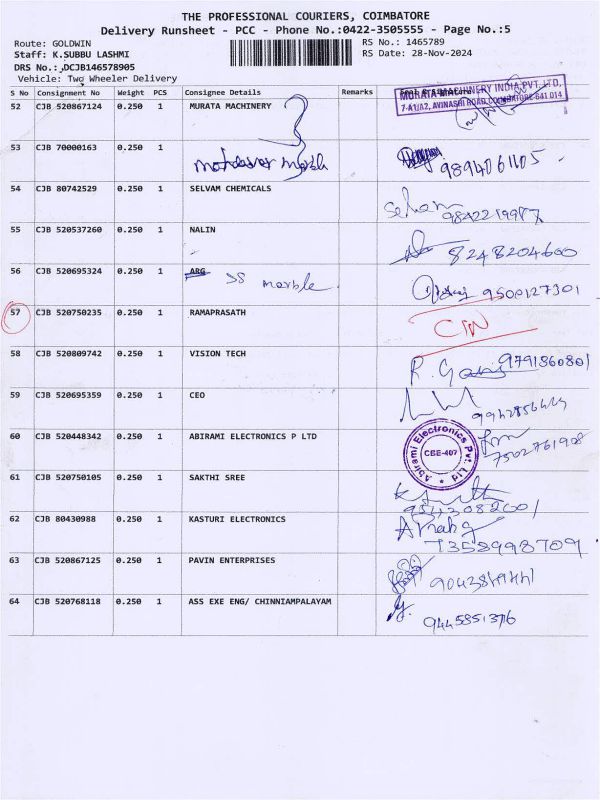 THE PROFESSIONAL COURIERS, COIMBATORE
Delivery Runsheet - PCC - Phone No.:0422-3505555 - Page No.:5
Route: GOLDWIN RS No.: 1465789
Staff: K.SUBBU LASHMI RS Date: 28-Nov-2024
DRS No.: DCJB146578905
Vehicle: Two Wheeler Delivery
S No Consignment No Weight PCS Consignee Details Remarks
MURATA MACHINERY INDIA PVT. LTD.
7-A1/A2, AVINASHI ROAD, COIMBATORE-641 014
52 CJB 520867124 0.250 1 MURATA MACHINERY
53 CJB 70000163 0.250 1 9894061105
54 CJB 80742529 0.250 1 SELVAM CHEMICALS
9842219987
55 CJB 520537260 0.250 1 NALIN 8248204600
56 CJB 520695324 0.250 1 ARG SS marble 9500127301
57 CJB 520750235 0.250 1 RAMAPRASATH
58 CJB 520809742 0.250 1 VISION TECH 9791860801
59 CJB 520695359 0.250 1 CEO
60 CJB 520448342 0.250 1 ABIRAMI ELECTRONICS P LTD Abirami Electronics Pvt. Ltd CBE-407
7502761908
61 CJB 520750105 0.250 1 SAKTHI SREE
62 CJB 80430988 0.250 1 KASTURI ELECTRONICS
7358998709
63 CJB 520867125 0.250 1 PAVIN ENTERPRISES
64 CJB 520768118 0.250 1 ASS EXE ENG/ CHINNIAMPALAYAM
9445851376